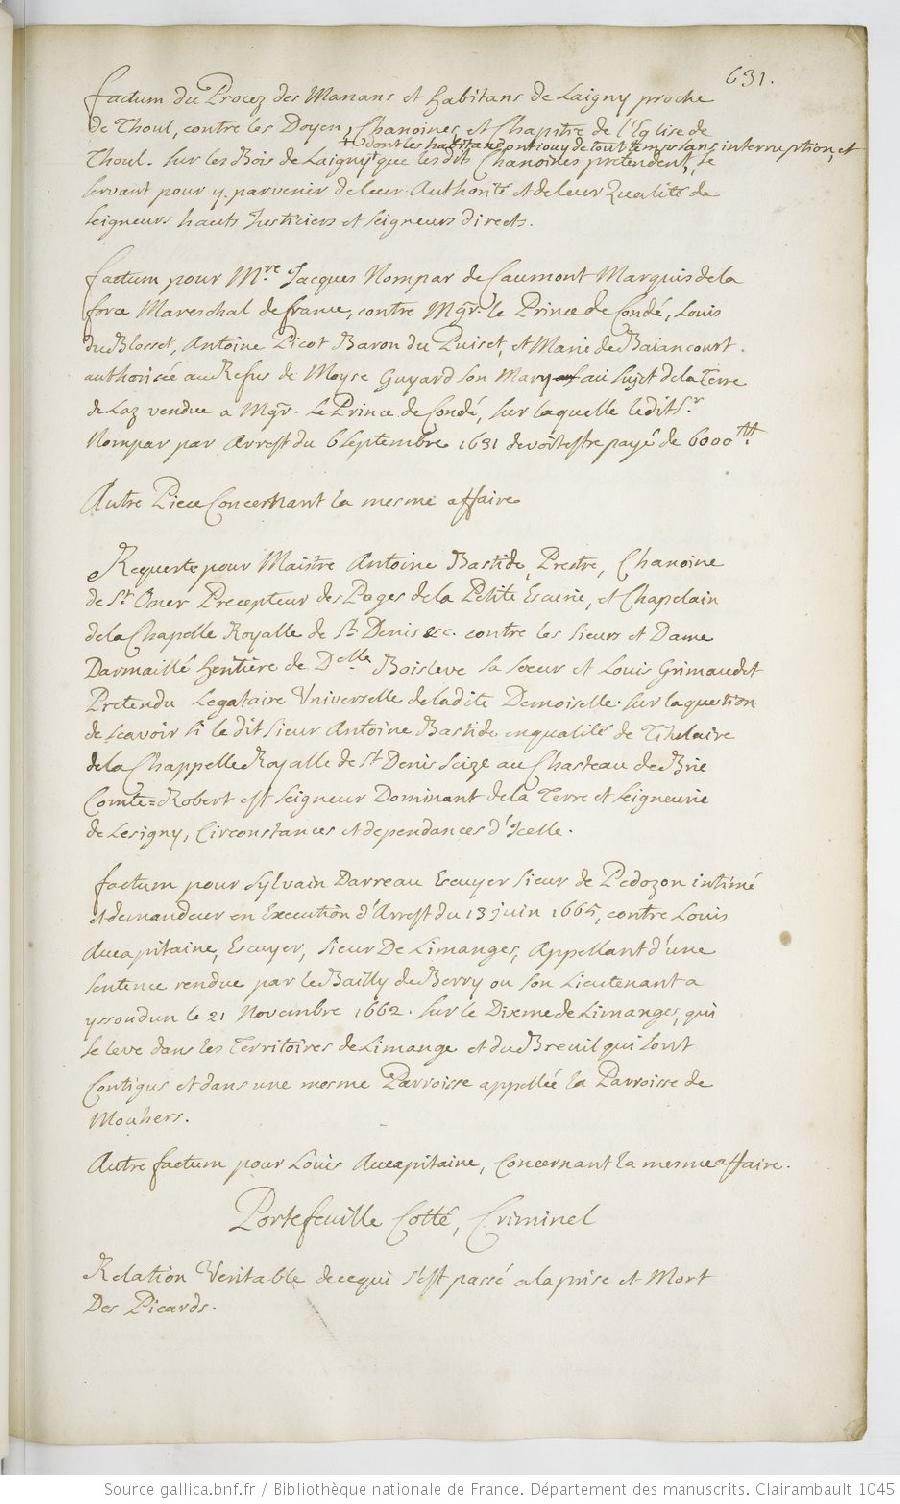 631.
factum du Procez des Manans et habitans de Laigny proche
de Thoul, contre les Doyen, Chanoines et Chapitre de l'Eglise de
+ dont les habitans ont iouy de tout temps sans interruption, et
Thoul. sur les Bois de Laigny + que lesdits Chanoines pretendent, se
servant pour y parvenir de leur Authorité et de leur Qualité de
seigneurs hauts Justiciers et seigneurs directs.
factum pour Mre. Jacques Nompar de Caumont Marquis de la
force Mareschal de france, contre Mgr. le Prince de Condé, Louis
du Blosset, Antoine Picot Baron du Puiset, et Marie de Baiancourt.
authorisée au Refus de Moyse Guyard son Mary au sujet de la Terre
de Laz vendue a Mgr. Le Prince de Condé, sur laquelle ledit Sr.
Nompar par Arrest du 6 septembre 1631 devoit estre payé de 6000 tt.
Autre Piece Concernant la mesme affaire
Requeste pour Maistre Antoine Bastide, Prestre, Chanoine
de St. Omer Precepteur des Pages de la Petite Escurie, et Chapelain
de la Chapelle Royalle de St. Denis &c. contre les sieurs et Dame
Darmaillé heritiere de Delle. Boisleve sa soeur et Louis Grimaudet
Pretendu Legataire Universelle de ladite Demoiselle. sur la question
de scavoir si le dit sieur Antoine Bastide en qualité de Titulaire
de la Chappelle Royalle de St Denis scize au Chasteau de Brie
Comte=Robert est seigneur Dominant de la Terre et seigneurie
de Lesigny, Circonstances et dependances d'Icelle.
factum pour Sylvain Darreau Escuyer sieur de Pedozon intimé
et demandeur en Execution d'Arrest du 13 juin 1665, contre Louis
Aucapitaine, Escuyer, sieur De Limanges, Appellant d'une
sentence rendue par le Bailly de Berry ou son Lieutenant a
yssoudun le 21 Novembre 1662. sur le Dixme de Limanges, qui
se leve dans les Territoires de Limange et du Breuil qui sont
Contigus et dans une mesme Parroisse appellée la Parroisse de
Mouhers.
Autre factum pour Louis Aucapitaine, Concernant la mesme affaire.
Portefeuille Cotté, Criminel
Relation Veritable de ce qui s'est passé a la prise et Mort
Des Picards.
Source gallica.bnf.fr / Bibliothèque nationale de France. Département des manuscrits. Clairambault 1045